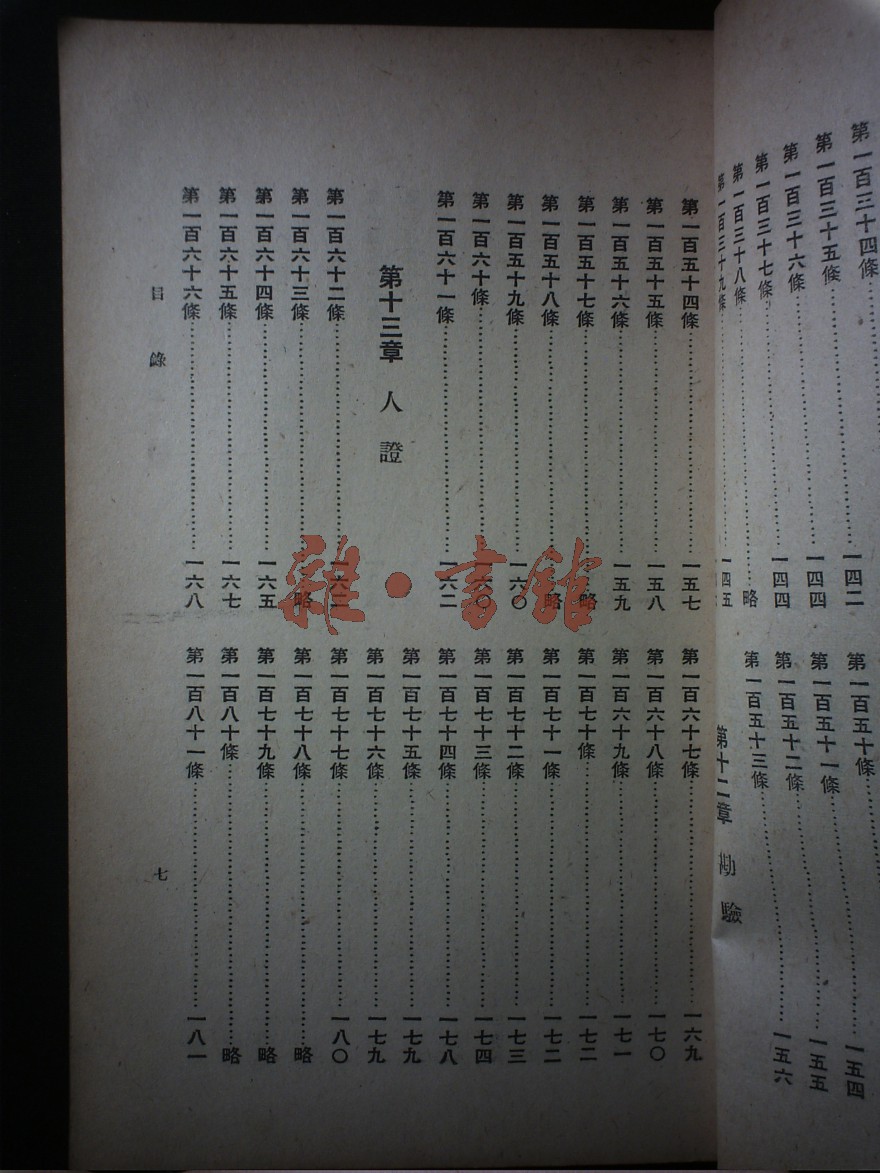 第一百三十四條……一四二
第一百三十五條……一四四
第一百三十六條……一四四
第一百三十七條……略
第一百三十八條……一四五
第一百三十九條……
第一百五十條……
第一百五十一條……一五四
第一百五十二條……一五五
第一百五十三條……一五六
第十二章 勘驗
第一百五十四條……一五七
第一百五十五條……一五八
第一百五十六條……一五九
第一百五十七條……略
第一百五十八條……略
第一百五十九條……一六〇
第一百六十條……一六〇
第一百六十一條……一六二
第十三章 人證
第一百六十二條……
第一百六十三條……略
第一百六十四條……一六五
第一百六十五條……一六七
第一百六十六條……一六八
第一百六十七條……一六九
第一百六十八條……一七〇
第一百六十九條……一七一
第一百七十條……一七二
第一百七十一條……一七二
第一百七十二條……一七三
第一百七十三條……一七四
第一百七十四條……一七八
第一百七十五條……一七九
第一百七十六條……一七九
第一百七十七條……一八〇
第一百七十八條……略
第一百七十九條……略
第一百八十條……略
第一百八十一條……一八一
目錄
七
雜·書館